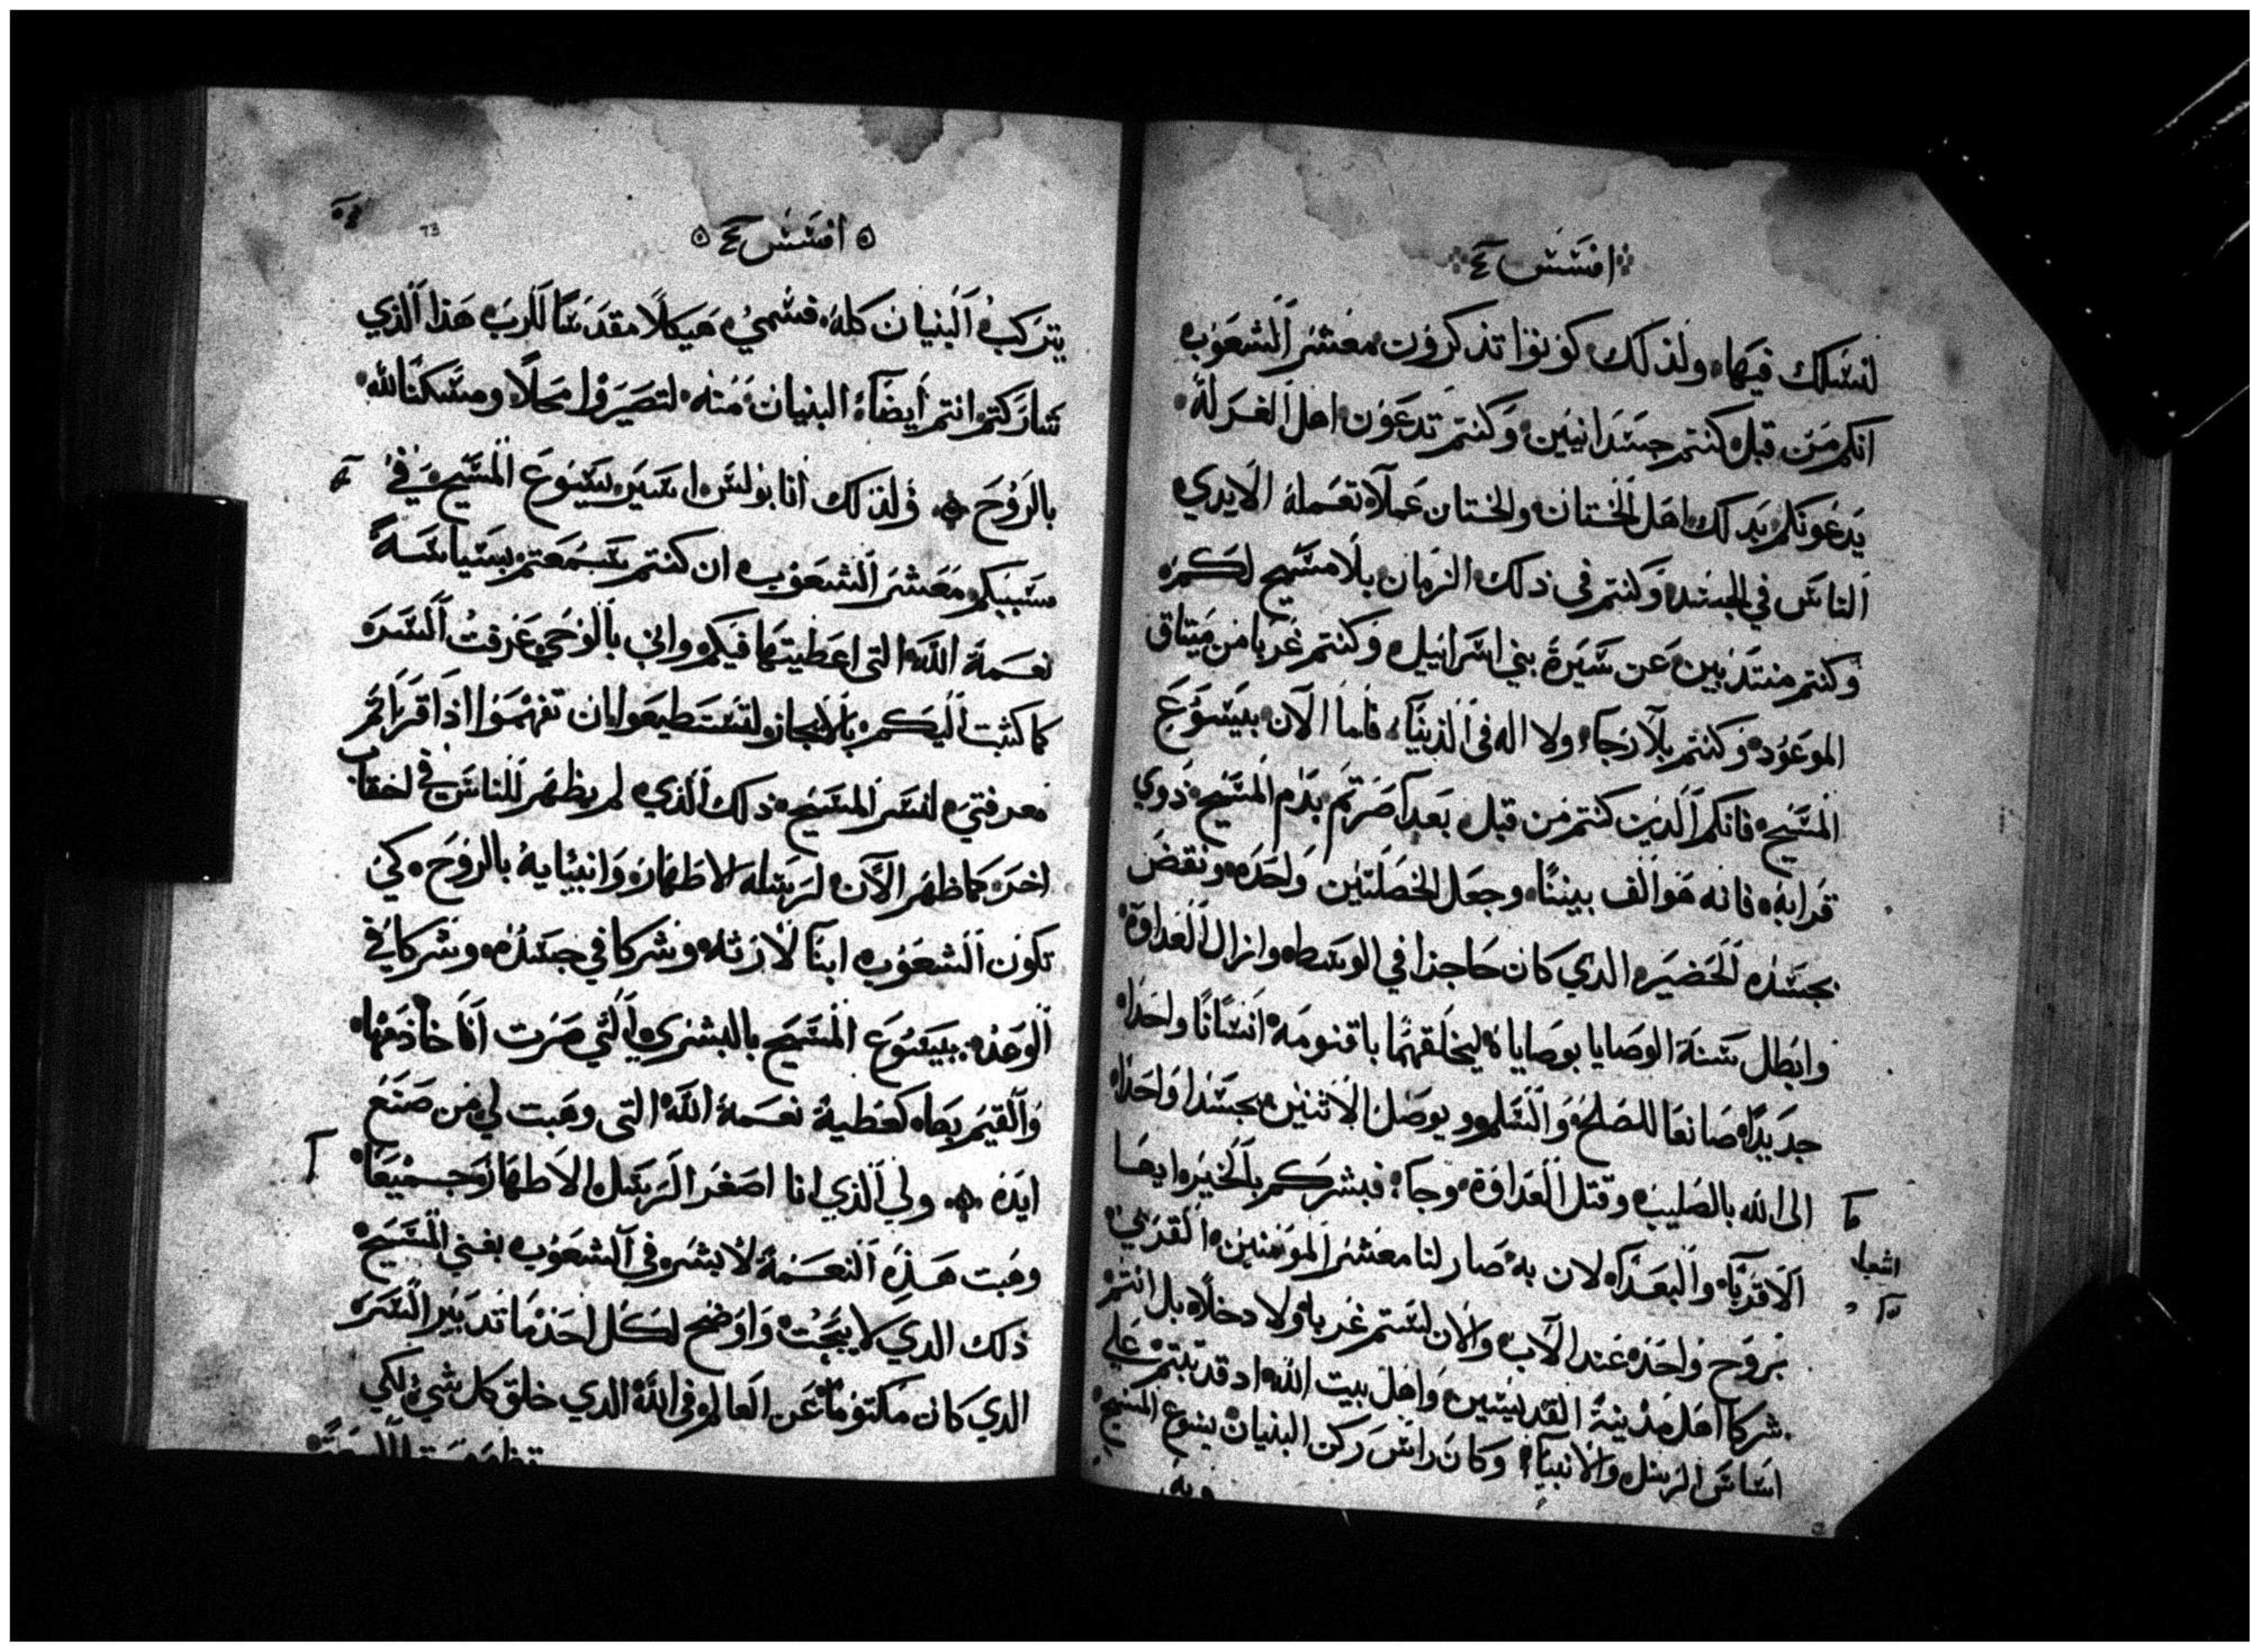 افسس ٤
لنسلك فيها، ولذلك كونوا تذكرون معشر الشعوب
انكم من قبل كنتم جسدانيين، وكنتم تدعون اهل الغرله
يدعونكم بدلك اهل الختان، والختان عملاً تعمله الايدي
الناس في الجسد، وكنتم في ذلك الزمان بلا مسيح لكم
وكنتم منتذبين عن سيرة بني اسرائيل وكنتم غربا من ميتاق
الموعود، وكنتم بلا رجاء ولا اله في الدنيا، فاما الان بيسوع
المسيح، فانكم الدين كنتم من قبل بعدا صرتم بدم المسيح ذوي
قرابه، فانه هو الف بيننا، وجعل الخصلتين واحده ونقض
بجسده الحضيره الدي كان حاجزا في الوسط، وازال العداوة
وابطل سنة الوصايا بوصاياه ليخلقهما باقنومه انسانا واحدا
جديدا، صانعا للصلح والسلم ويوصل الاثنين بجسدا واحدا
الى الله بالصليب وقتل العداوة، وجاء، فبشركم بالخير ايها
الاقربا، والبعدا، لان به صار لنا معشر المومنين، القربي
بروح واحده عند الاب، والان لستم غربا، ولا دخلا، بل انتم
شركا اهل مدينة القديسين، واهل بيت الله، اد قد بنيتم علي
اساس الرسل والانبياء، وكان راس ركن البنيان يسوع المسيح
وبه
ما
اشعيا
افسس ٤
73
يتركب البنيان كله، فسمي هيكلاً مقدسا للرب هذا الذي
شاركتم انتم ايضاً، البنيان منه، لتصيروا محلاً ومسكنا لله
بالروح ولذلك انا بولس اسير يسوع المسيح في
سببكم معشر الشعوب ان كنتم سمعتم بسياسة
نعمة الله التي اعطيتها فيكم واني بالوحي عرفت السر
كما كتبت اليكم بالايجاز لتستطيعوا ان تفهموا اذا قراتم
معرفتي لسر المسيح، ذلك الذي لم يظهر للناس في احقاب
اخر، كما ظهر الان لرسله الاطهار، وانبيايه بالروح، كي
تكون الشعوب ابنا لارثه وشركا في جسده، وشركا في
الوعد، بيسوع المسيح بالبشري التي صرت انا خادمها
والقيم بها، كعطية نعمة الله التي وهبت لي من صنع
ايده ولي الذي انا اصغر الرسل الاطهار جميعا
وهبت هذه النعمة لابشر في الشعوب بغني المسيح
ذلك الدي لا يبحت واوضح لكل احد ما تدبير السر
الدي كان مكتوما عن العالم في الله الدي خلق كل شيء لكي